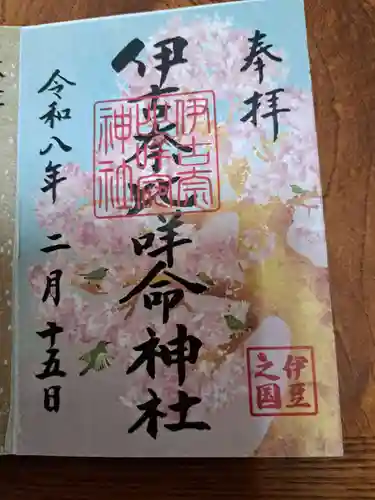 奉拝
伊古奈比咩命神社
伊古奈比咩命神社
伊豆之国
令和八年 二月 十五日